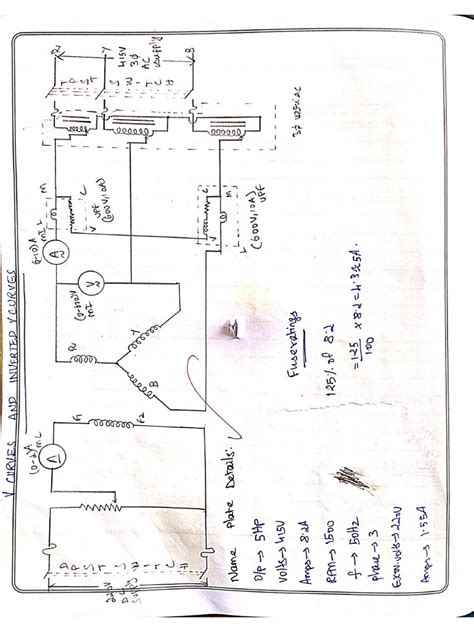 V CURVES AND INVERTED V CURVES
220V
DC
Supply
D
P
S
T
S
W
I
T
C
H
(0-2)A
MC
A
F1
F2
R
Y
B
(0-600)V
MI
V
(0-10)A
MI
A
M
L
C
V
UPF
(600V,10A)
V
C
L
M
(600V,10A)
UPF
3φ variac
T
P
S
T
S
W
I
T
C
H
R
Y
B
415V
3φ
AC
supply
Name Plate Details:
O/P → 5HP
Volts → 415V
Amps → 8.2A
RPM → 1500
f → 50Hz
phase → 3
Exn. volts → 220V
Amps → 1.55A
Fuse ratings
125% of 8.2
= 125/100 × 8.2 =